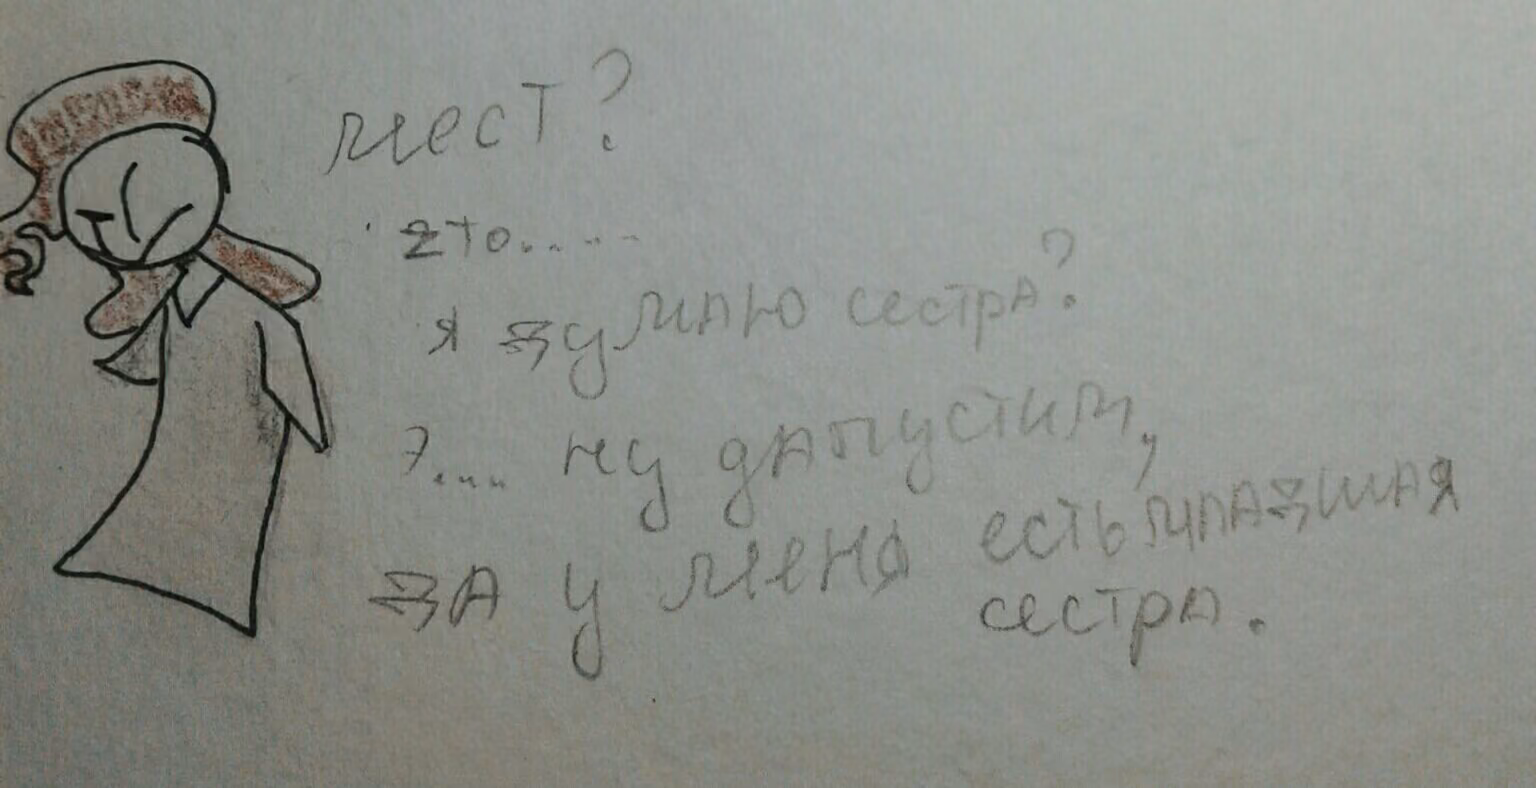 мест?
это.....
я думаю сестра?
э.... ну дапустим,
да у меня есть младшая
сестра.